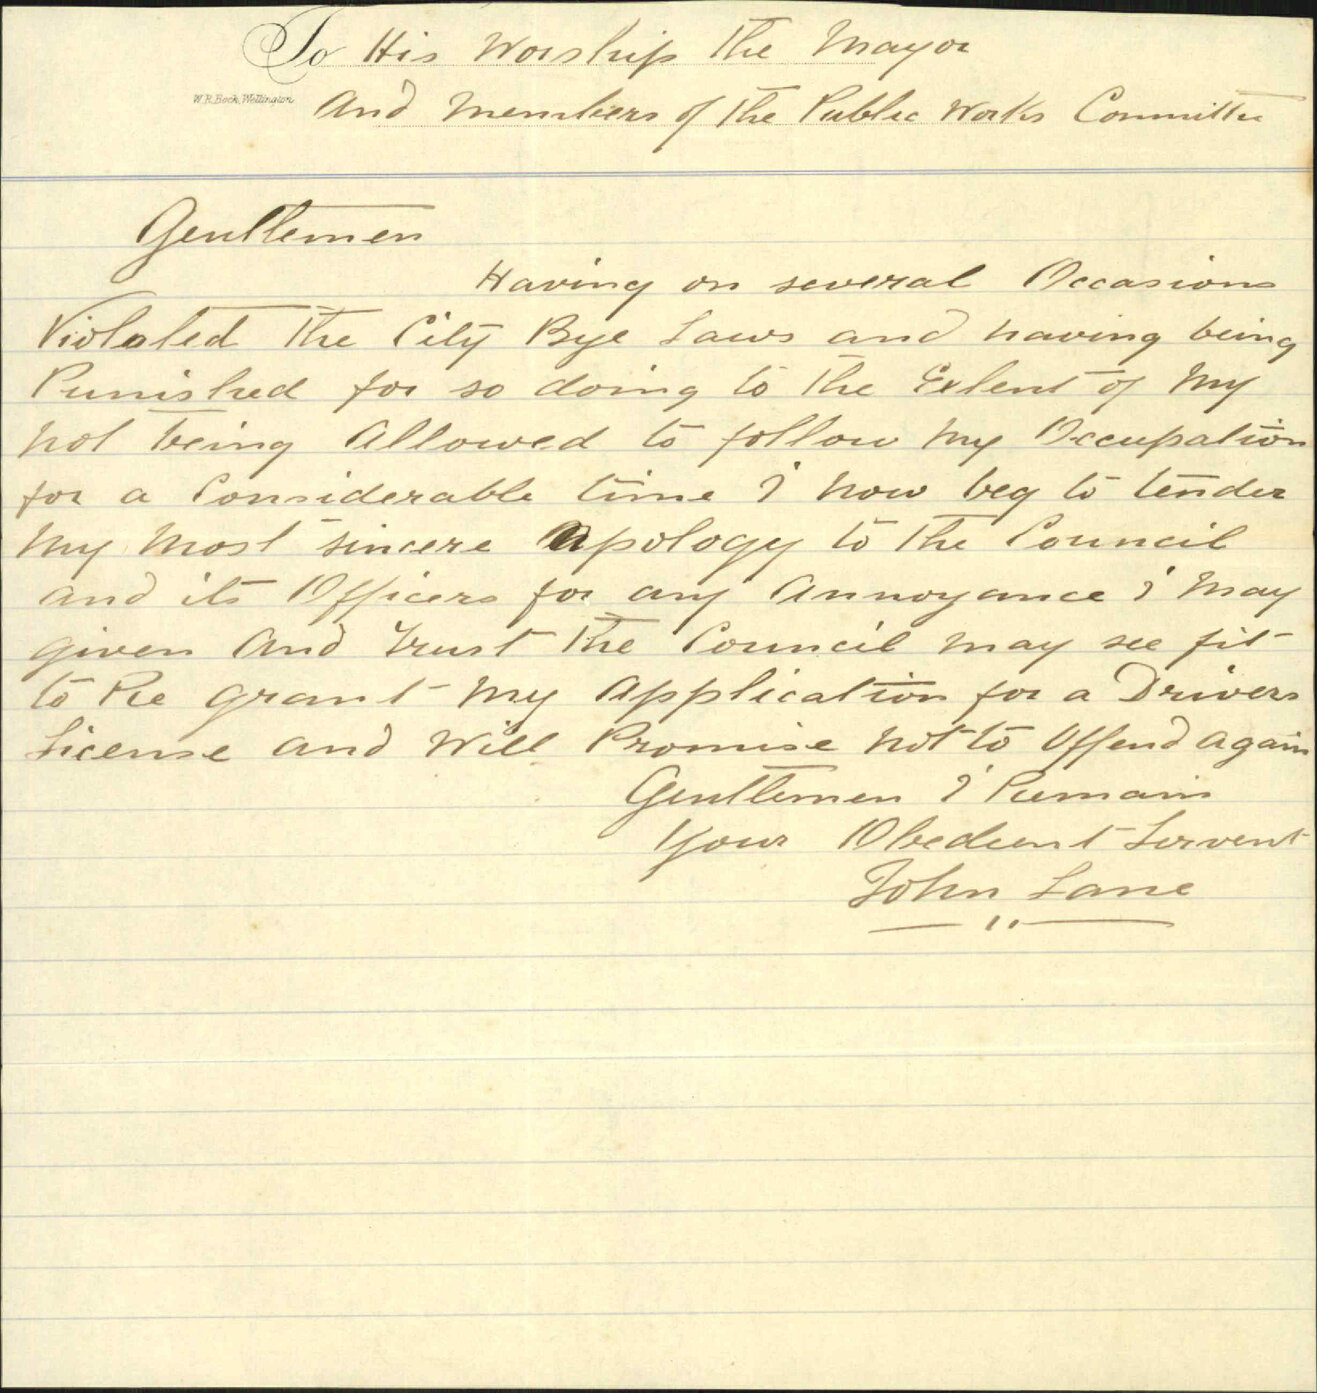 To His Worship The Mayor
W.R.Bock, Wellington
And Members of The Public Works Committee
Gentlemen
Having on several Occasions
Violated The City Bye Laws and having being
Punished for so doing to The Extent of My
Not being Allowed to follow My Occupation
for a Considerable time I Now beg to tender
My Most sincere Apology to The Council
and its Officers for any Annoyance I May
given And trust The Council may see fit
to Re grant My Application for a Drivers
License and Will Promise Not to Offend Again
Gentlemen I Remain
Your Obedient Servent
John Lane